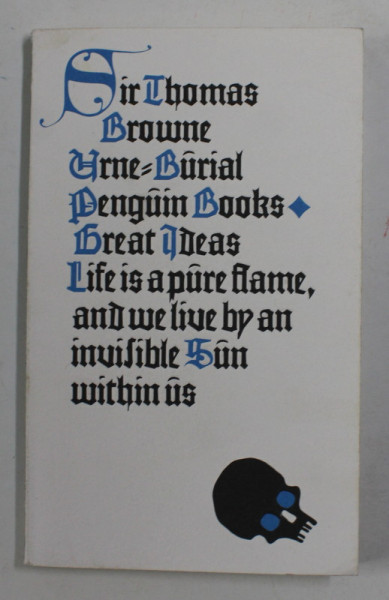 Sir Thomas
Browne
Urne=Bûrial
Pengûin Books ◆
Great Ideas
Life is a pûre flame,
and we live by an
inviſible Sûn
within ûs